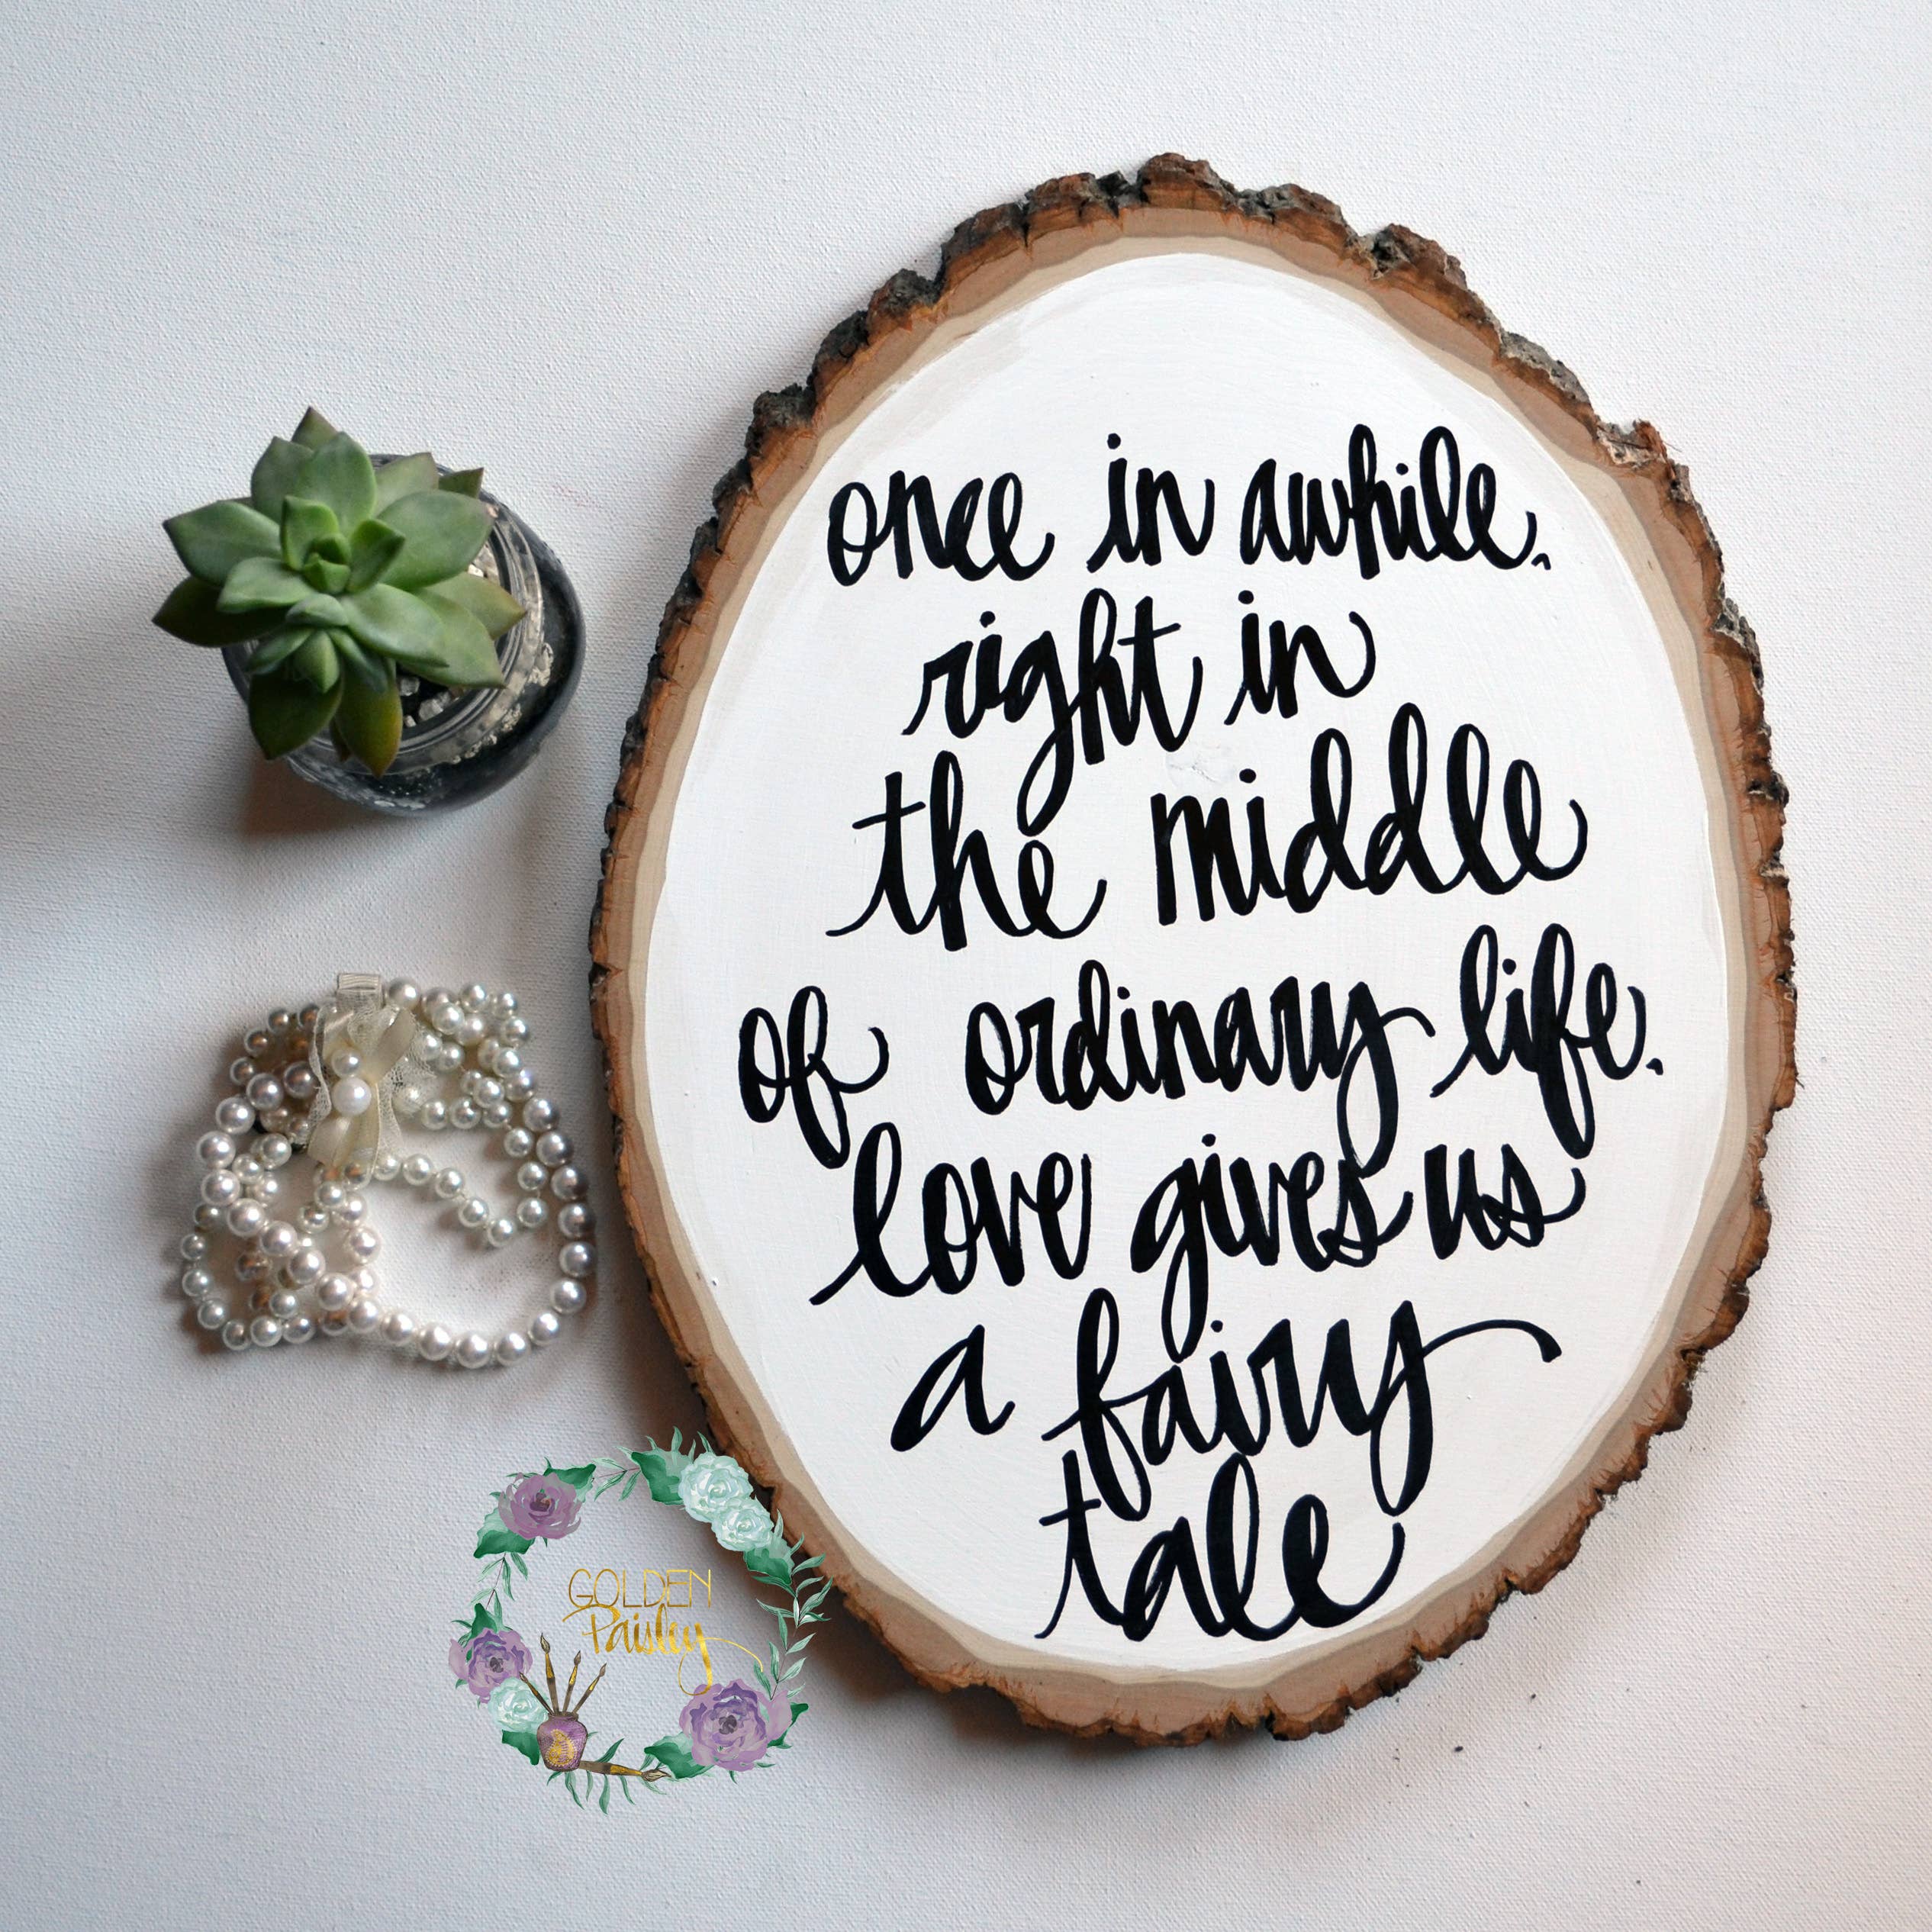 once in awhile,
right in
the middle
of ordinary life,
love gives us
a fairy
tale
GOLDEN
Paisley